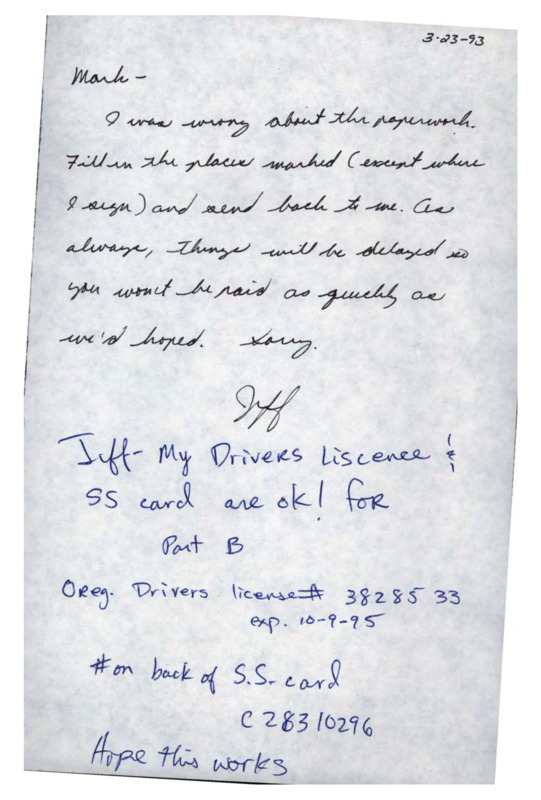 3-23-93
Mark-
I was wrong about the paperwork.
Fill in the places marked (except where
I sign) and send back to me. As
always, things will be delayed so
you won't be paid as quickly as
we'd hoped. Sorry.
Jeff
Jeff- My Drivers Liscence &
SS card are ok! for
Part B
Oreg. Drivers license# 3828533
exp. 10-9-95
# on back of S.S. card
C28310296
Hope this works